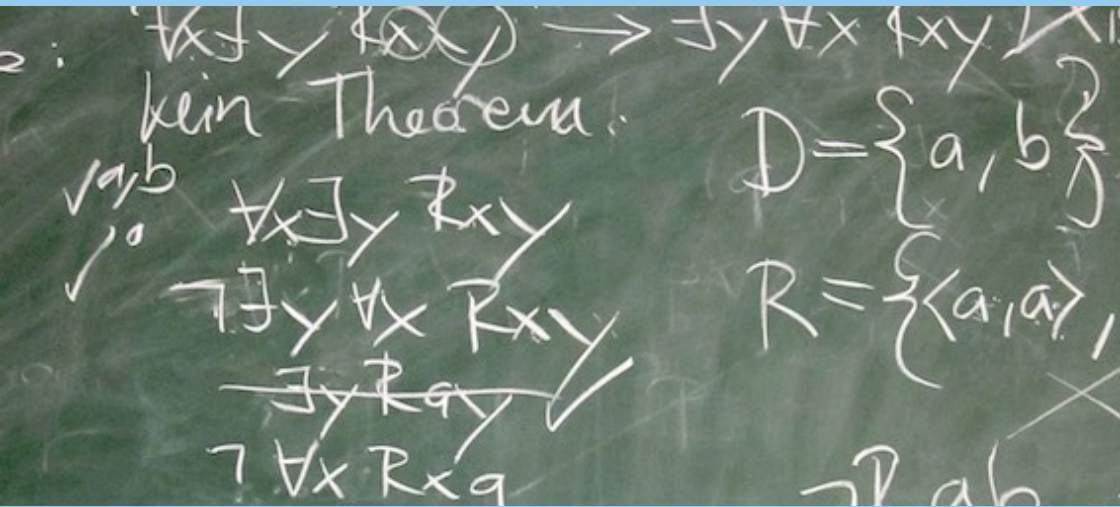 ∀x∃y Rxy → ∃y∀x Rxy
kein Theorem.
D={a,b}
√a,b ∀x∃y Rxy
√a ¬∃y∀x Rxy
R={<a,a>,
∃y Ray √
¬∀x Rxa
¬R ab